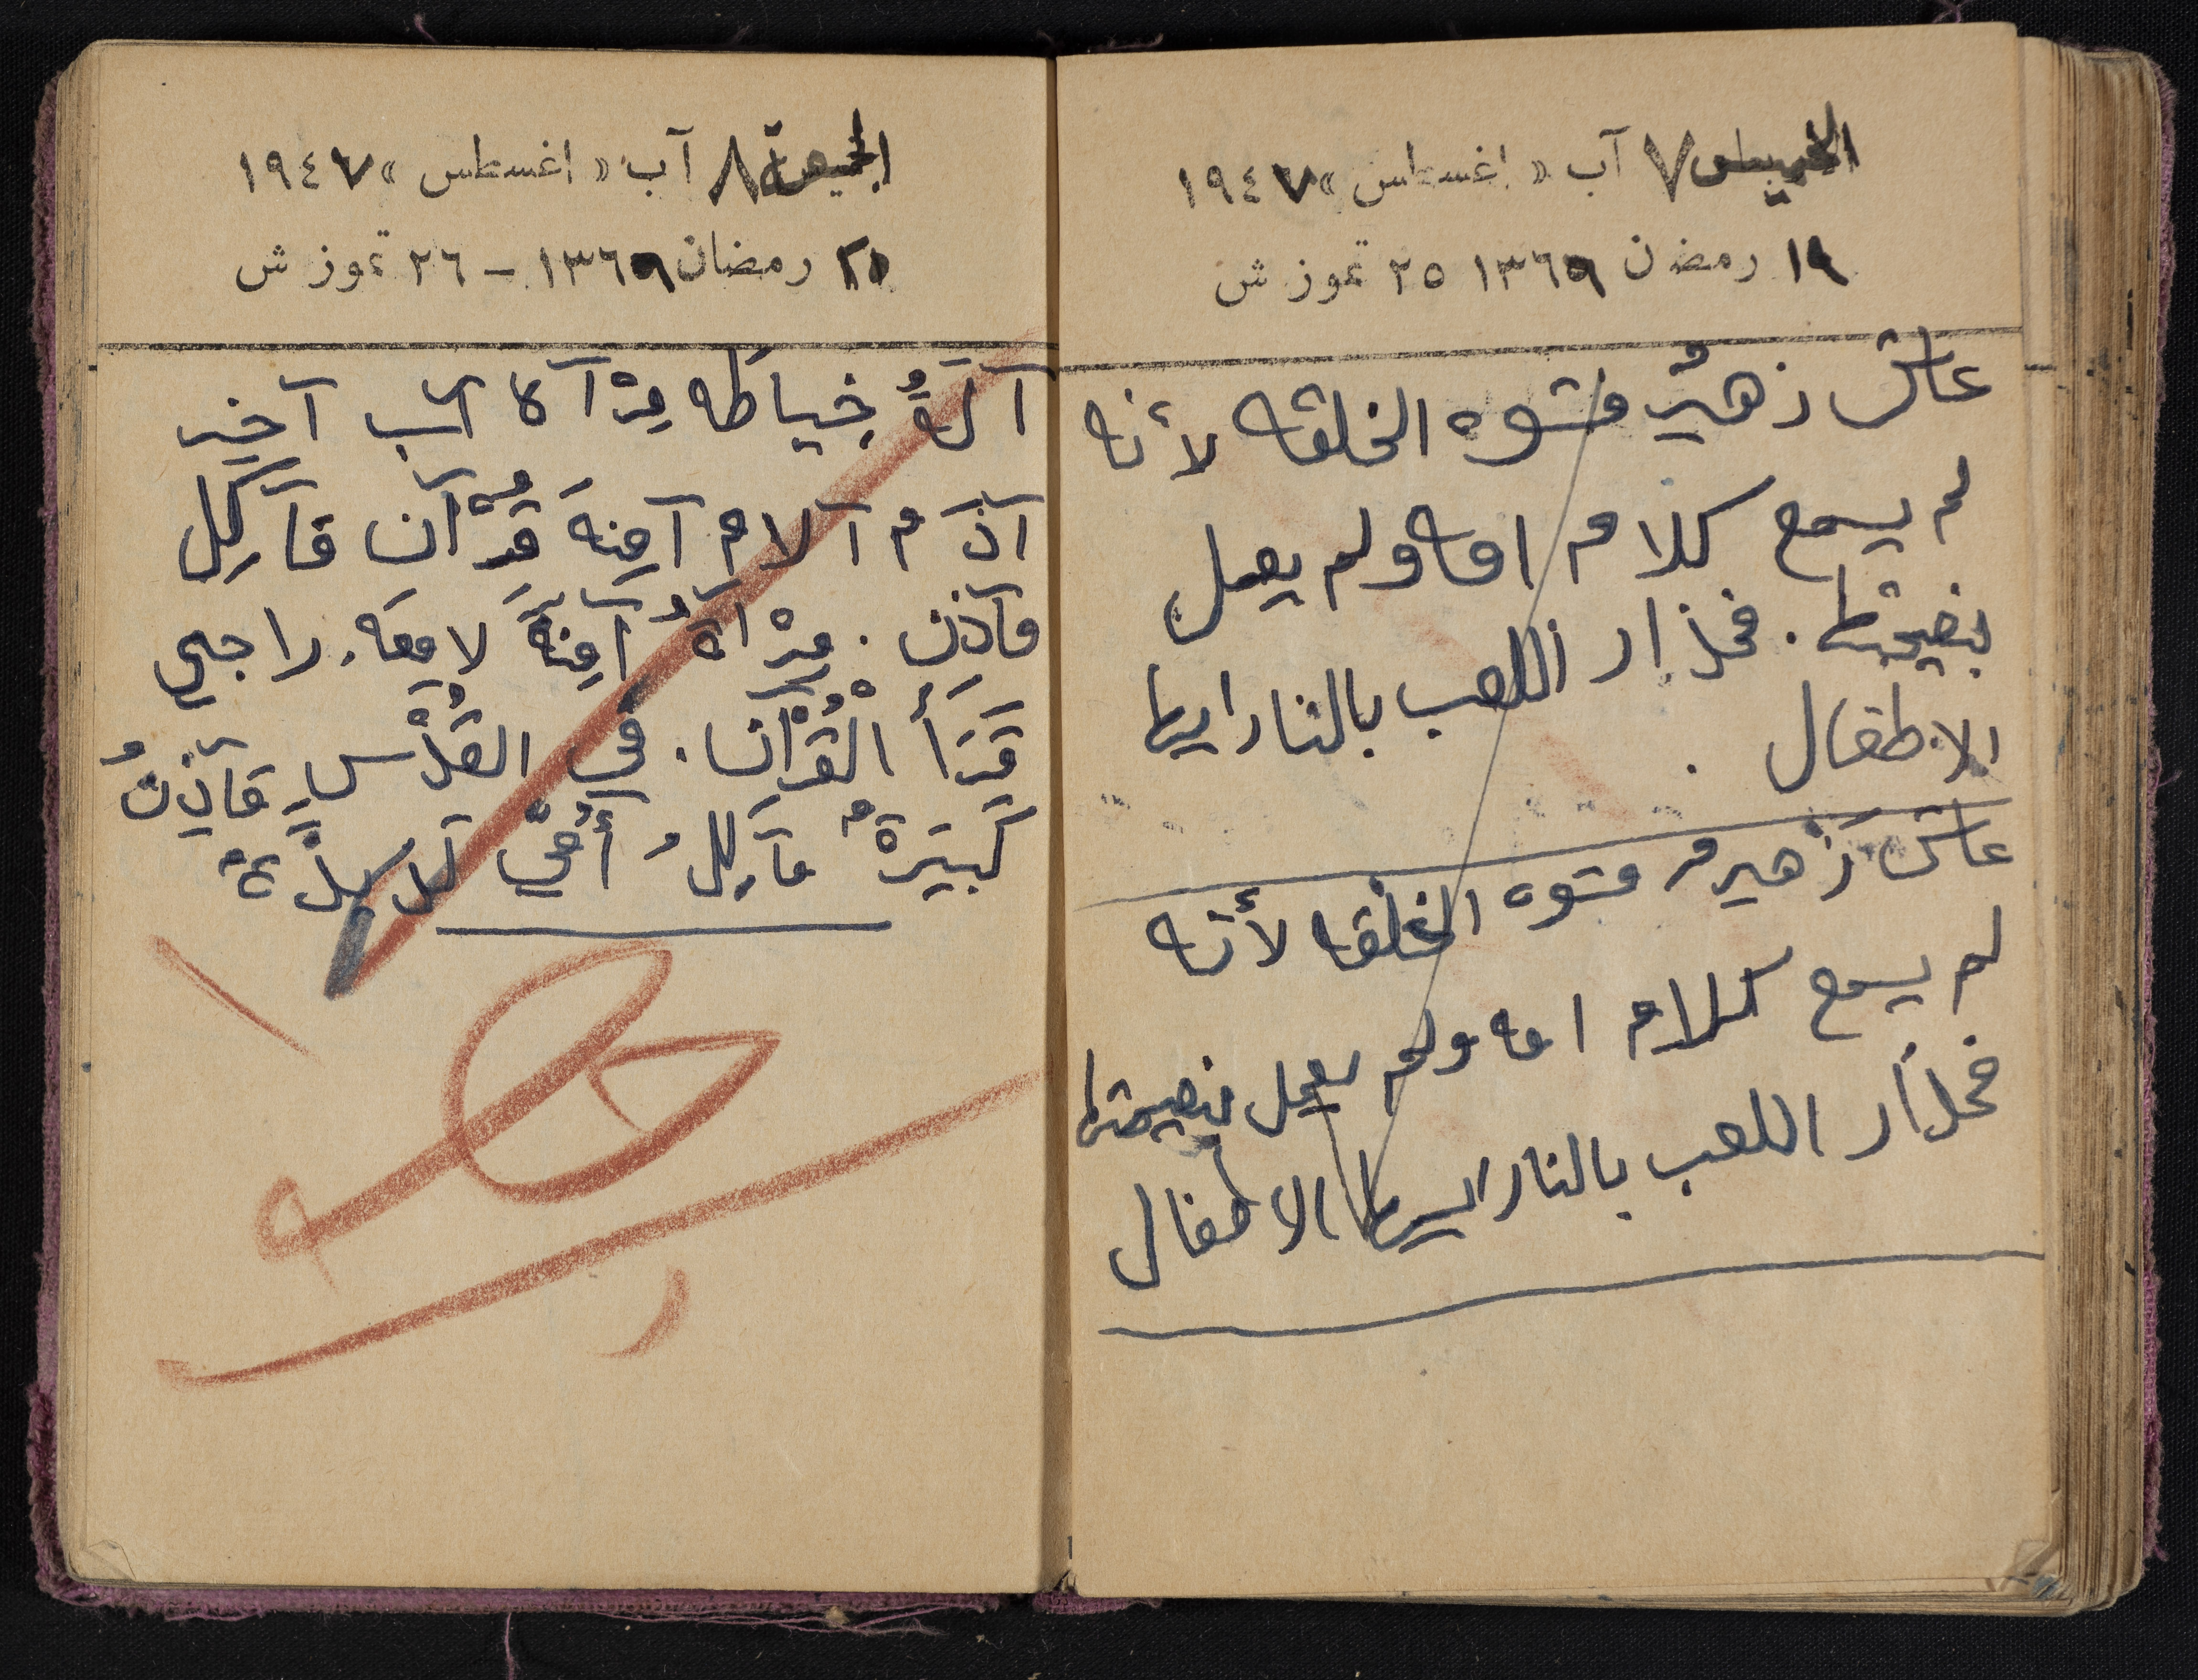 الخميس ٧ آب « اغسطس » ١٩٤٧
١٩ رمضان ١٣٦٩ ٢٥ تموز ش
عاش زهيرٌ مشوه الخلقه لأنه
لم يسمع كلام امه ولم يعمل
بنصيحتها. فحذار اللعب بالنار ايها
الاطفال .
عاش زهير مشوه الخلقه لأنه
لم يسمع كلام امه ولم يعمل بنصيحتها
فحذار اللعب بالنار ايها الاطفال
الجمعة ٨ آب « اغسطس » ١٩٤٧
٢١ رمضان ١٣٦٩ - ٢٦ تموز ش
آلَةُ خِياطه مِرْآة آب آخِر
آدَم آلام آمِنَه قُرْآن مَآكِل
مَآذِن . مِرْآةُ آمِنَةَ لامِعَه. راجي
قَرَأَ الْقُرْآن . في القُدْسِ مَآذِنُ
كَبيَرَةٌ مَآكِلُ أُمّي لذيذةٌ